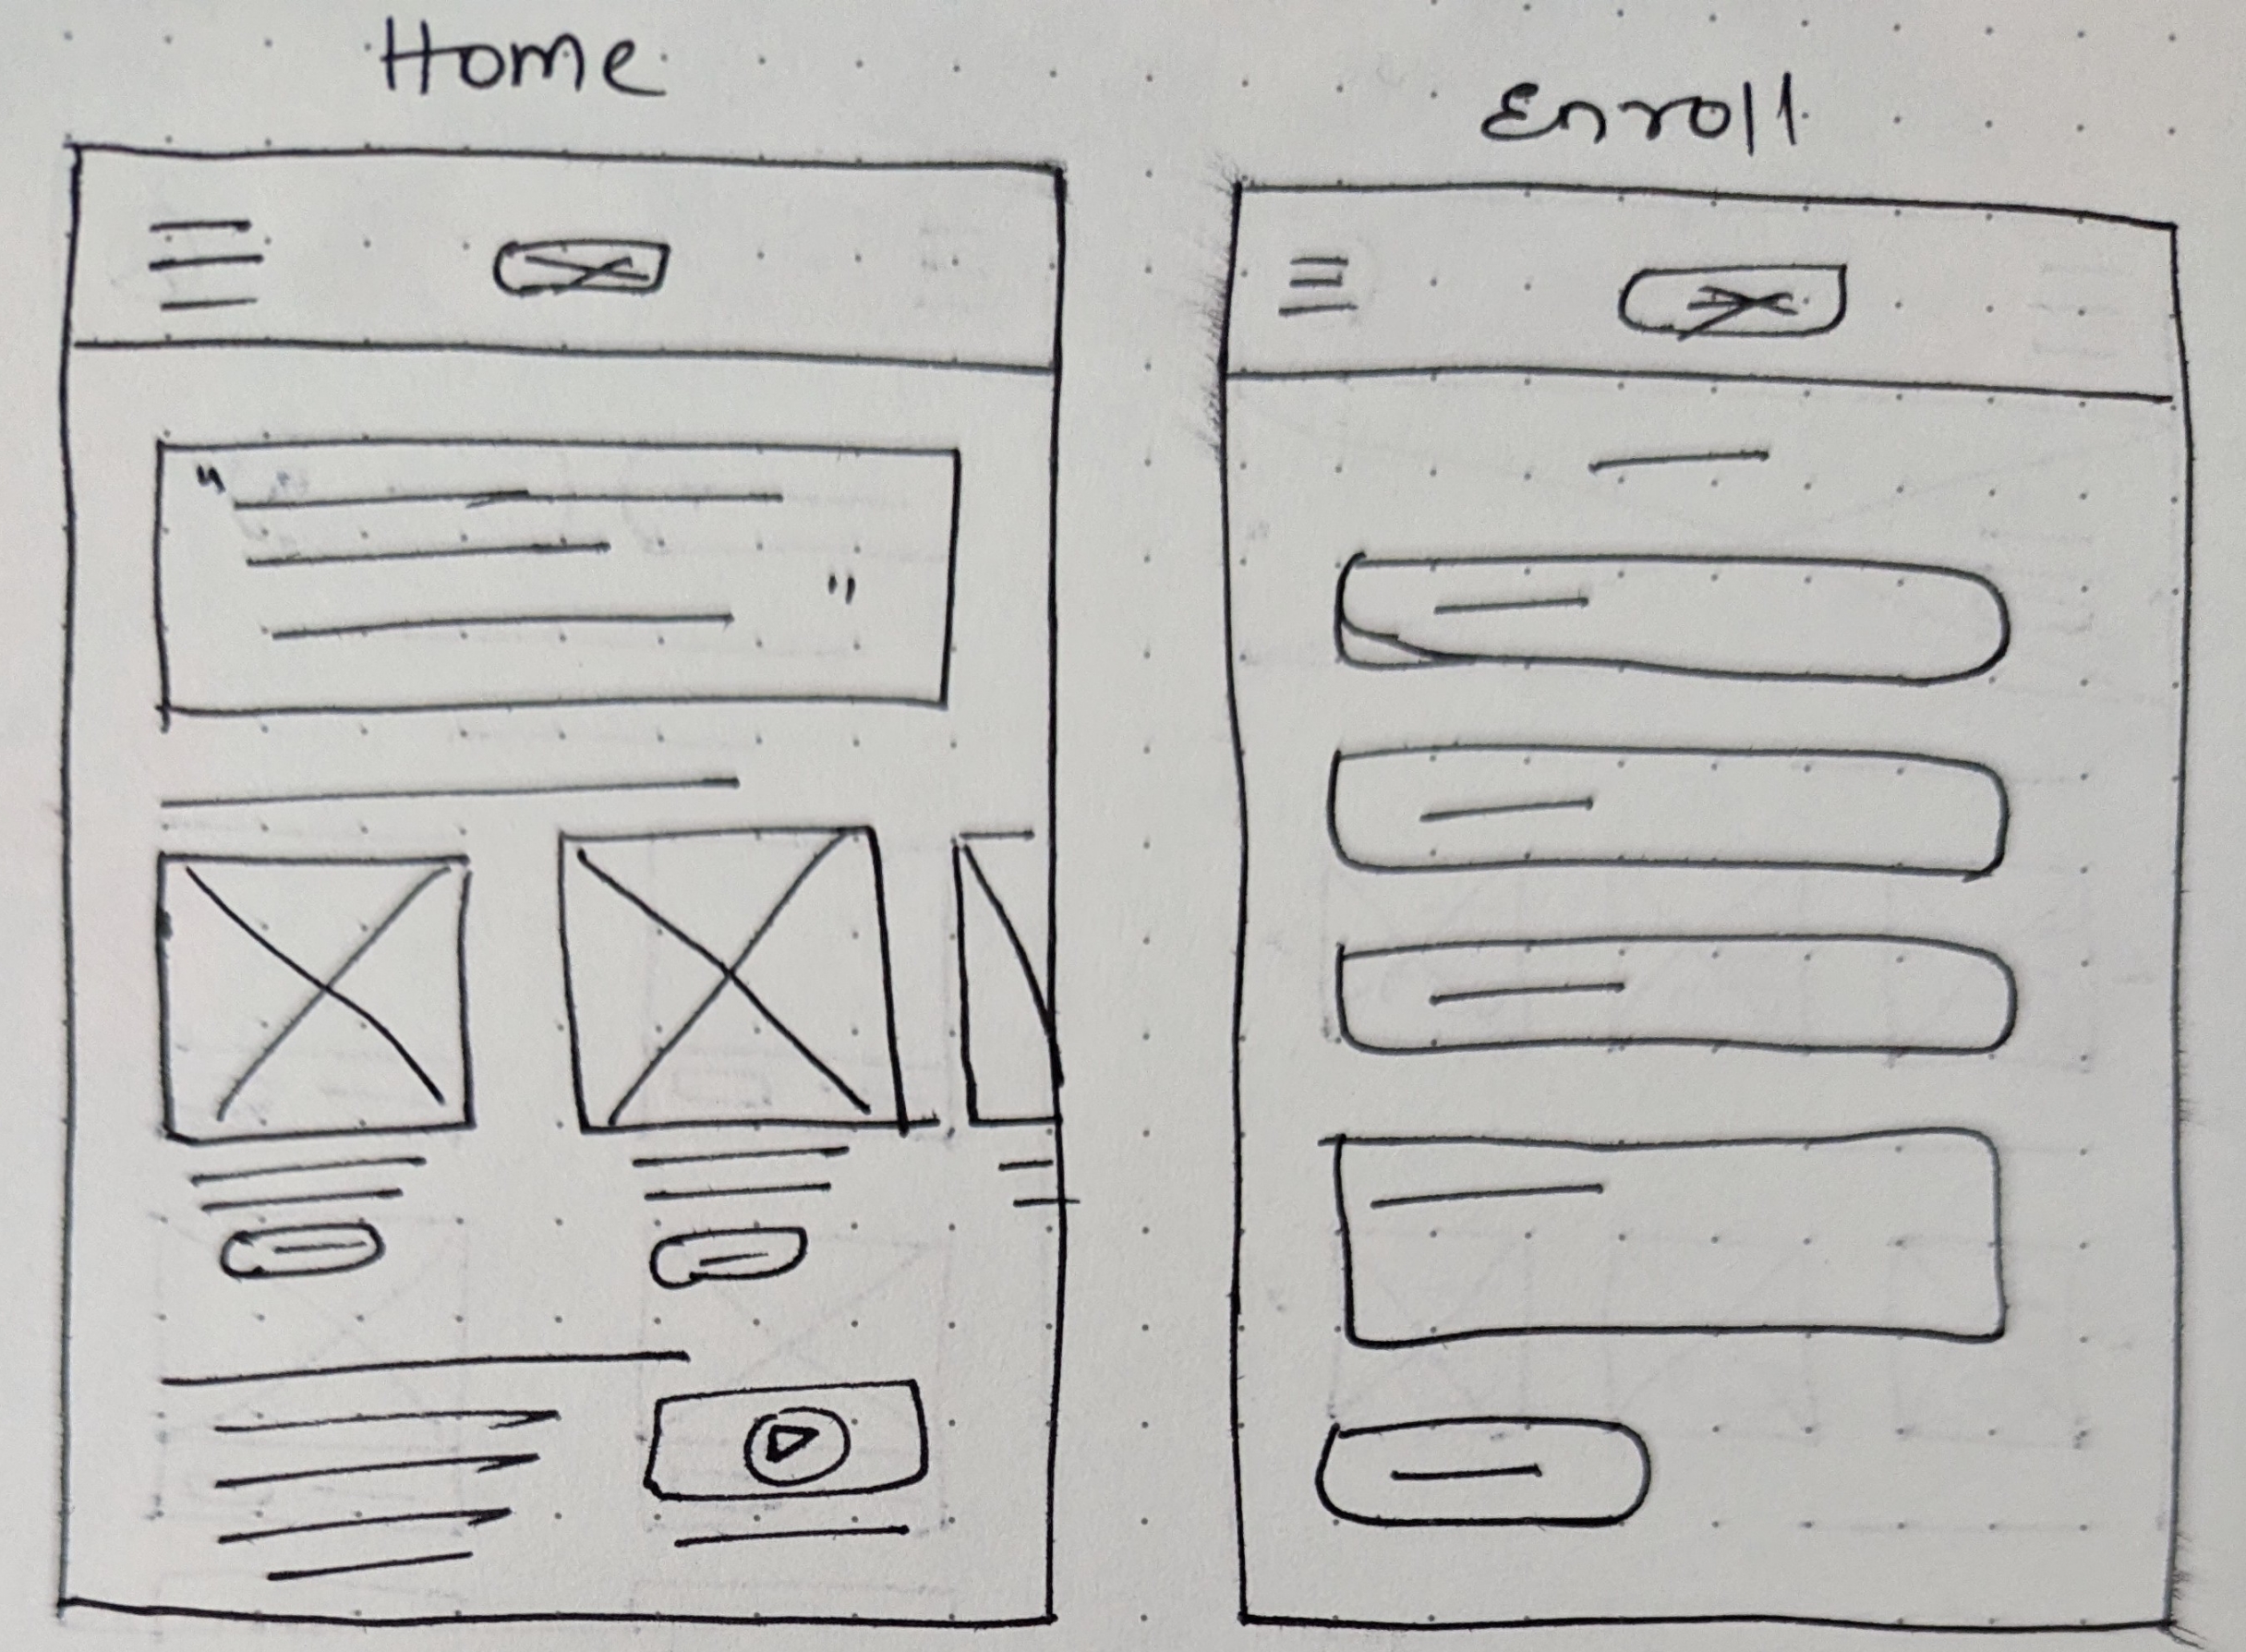 Home
Enroll
"
"